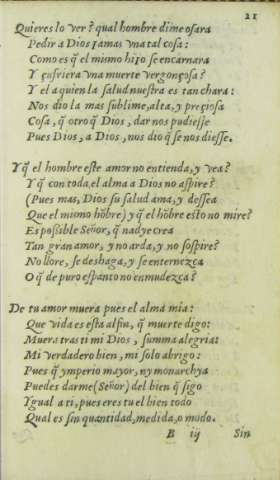 21
Quieres lo ver? qual hombre dime osara
Pedir a Dios jamas vna tal cosa:
Como es q̃ el mismo hijo se encarnara
Y çufriera vna muerte vergonçosa?
Y el a quien la salud nuestra es tan chara:
Nos dio la mas sublime, alta, y preçiosa
Cosa, q̃ otro q̃ Dios, dar nos pudiesse
Pues Dios, a Dios, nos dio q̃ se nos diesse.
Y q̃ el hombre este amor no entienda, y vea?
Y q̃ con toda el alma a Dios no aspire?
(Pues mas, Dios su salud ama, y dessea
Que el mismo hõbre) y q̃ el hõbre esto no mire?
Es possible Señor, q̃ nadye crea
Tan gran amor, y no arda, y no sospire?
No llore, se deshaga, y se enternezca
O q̃ de puro espanto no enmudezca?
De tu amor muera pues el alma mia:
Que vida es esta al fin, q̃ muerte digo:
Muera tras ti mi Dios, summa alegria:
Mi verdadero bien, mi solo abrigo:
Pues q̃ ymperio mayor, ny monarchya
Puedes darme (Señor) del bien q̃ sigo
Ygual a ti, pues eres tu el bien todo
Qual es sin quantidad, medida, o modo.
B iij Sin